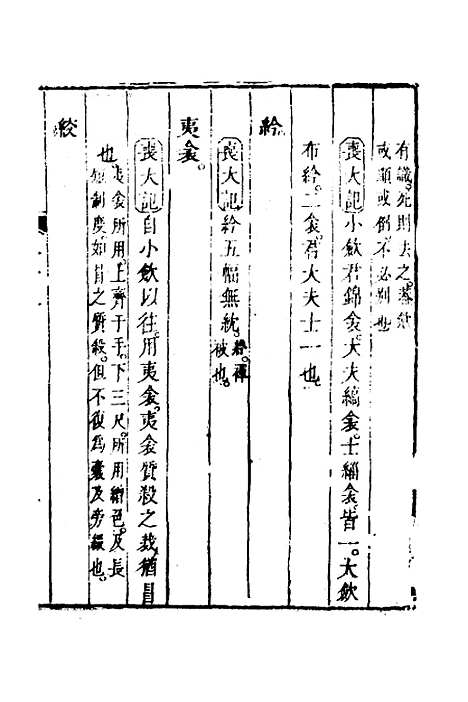 有識。死則去之。蓋衾
或顚或倒不必別也
喪大記小斂君錦衾。大夫縞衾。士緇衾。皆一。大斂
布紟。二衾。君大夫士一也。
紟
喪大記紟五幅無紞。紟。禪
被也。
夷衾。
喪大記自小斂以往。用夷衾。夷衾質殺之裁猶冒
也。夷衾所用。上齊于手。下三尺。所用繒色。及長
短制度如冒之質殺。但不復爲囊及旁綴也。
絞